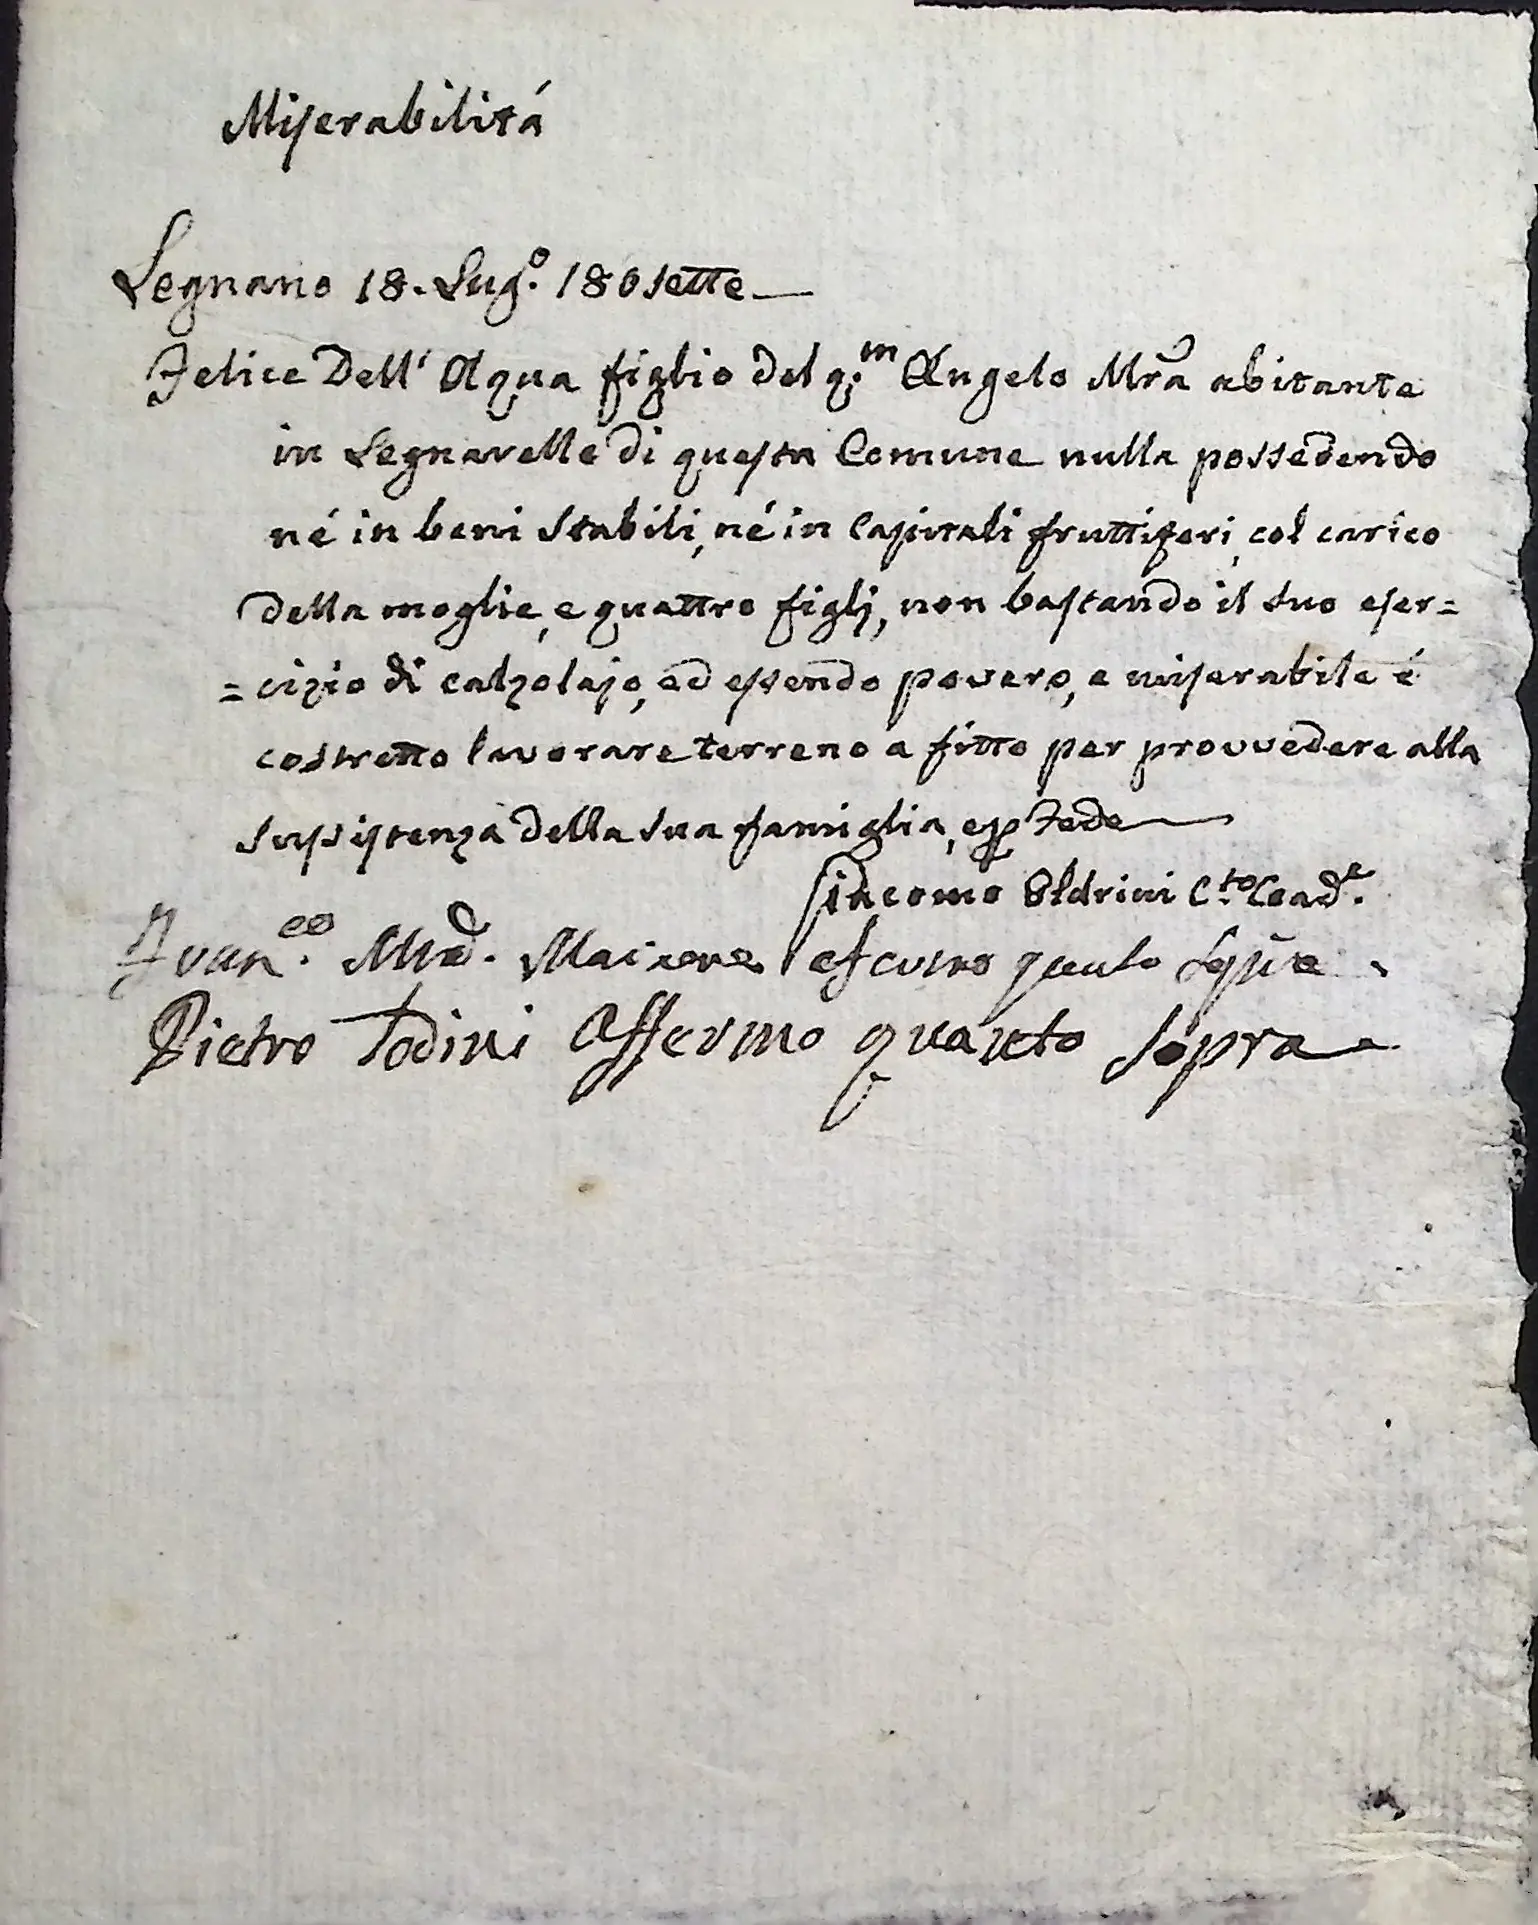 Miserabilitá
Legnano 18. Lug.o 180sette
Felice Dell' Aqua figlio del q.m Angelo Mra abitante
in Legnarelle di questa Comune nulla possedendo
né in beni stabili, né in Capitali fruttiferi, col carico
della moglie, e quattro figlj, non bastando il suo eser=
=cizio di calzolajo, ed essendo povero, e miserabile é
costretto lavorare terreno a fitto per provvedere alla
sussistenza della sua famiglia, e p fede
Giacomo Oldrini C.to
Fran.co Maizone quanto
Pietro Todini Affermo quanto sopra